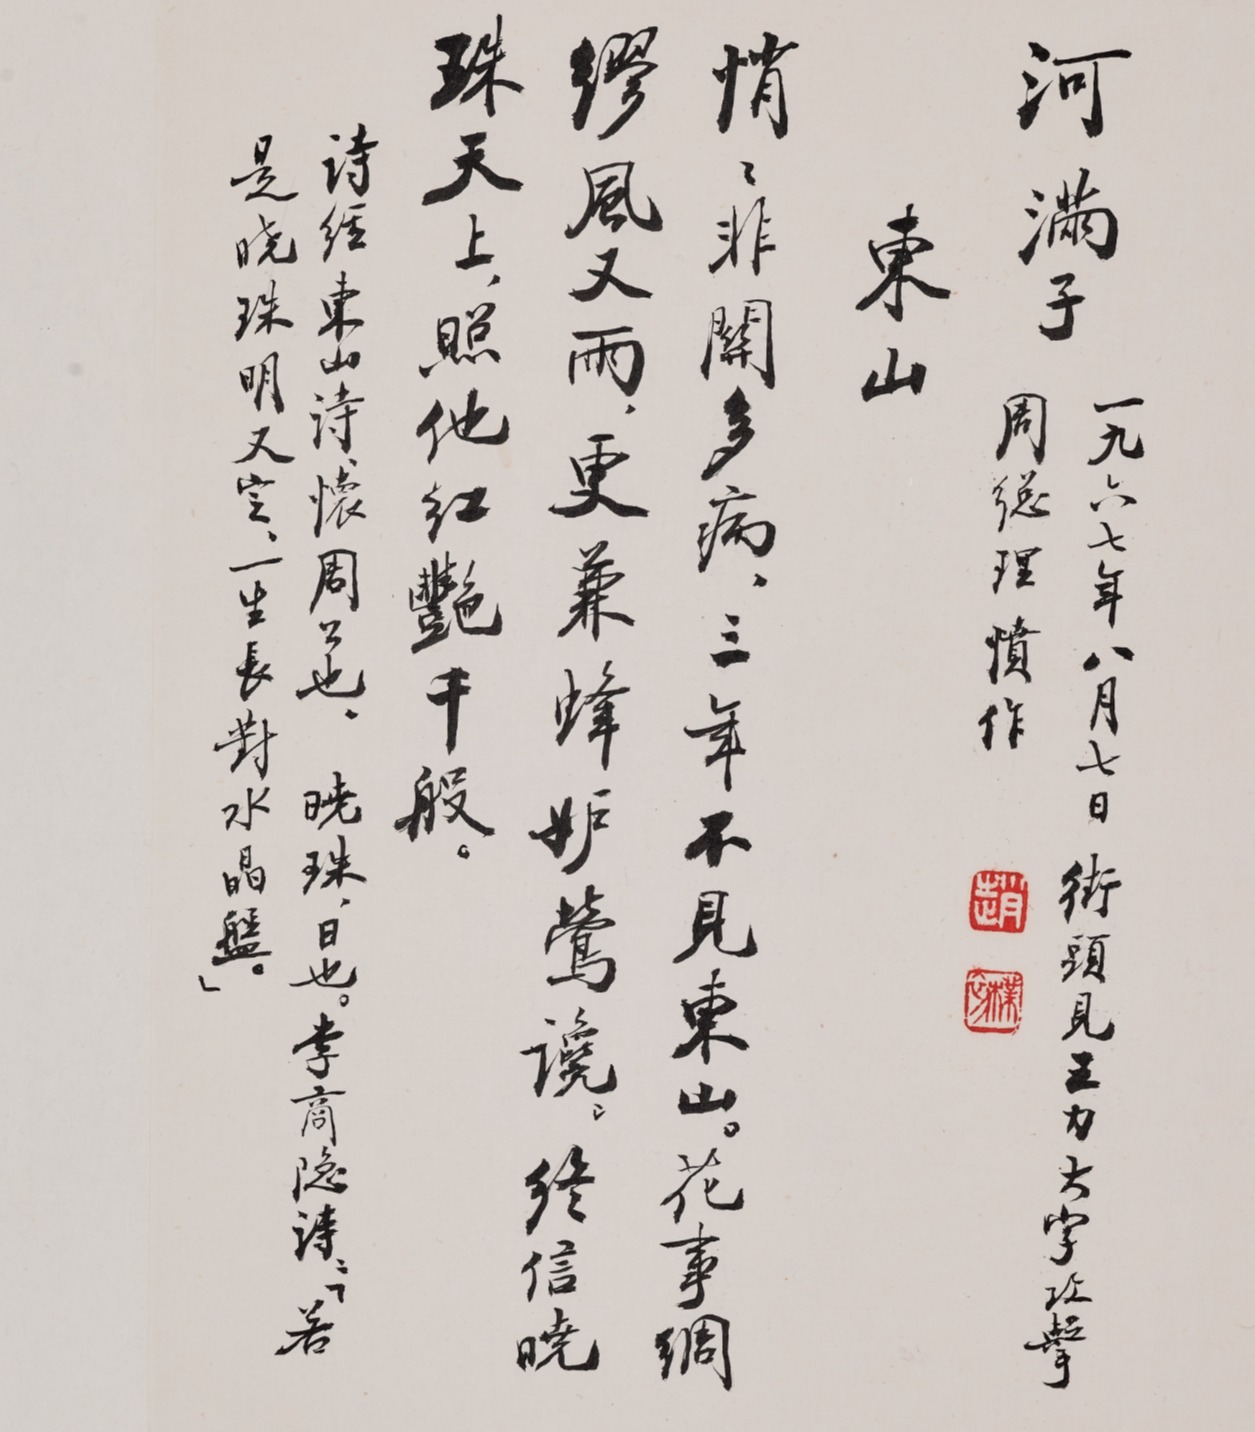 河满子
一九六七年八月七日街頭見王力大字攻擊
周総理憤作
趙
朴初
東山
悄〻非關多病、三年不見東山。花事綢
繆風又雨、更兼蜂妒鶯讒、終信曉
珠天上、照他红艷千般。
诗經東山诗、懷周公也、曉珠、日也。李商隐诗:「若
是曉珠明又定、一生長對水晶盤。」